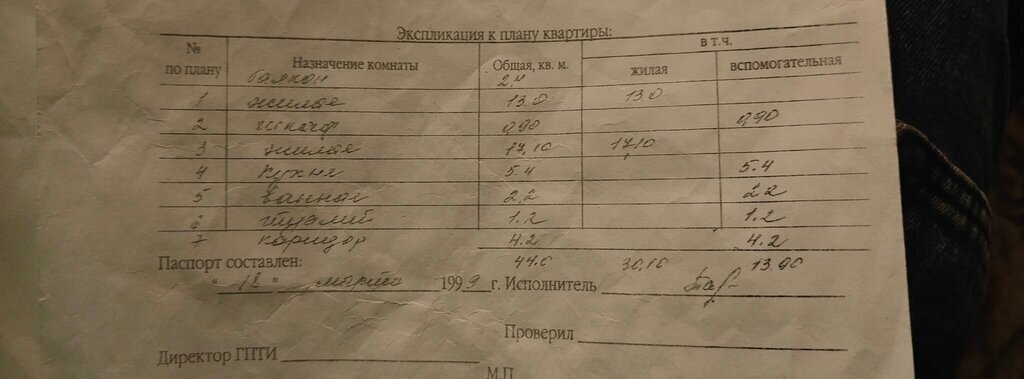 Экспликация к плану квартиры:
№ по плану Назначение комнаты Общая, кв. м. в т.ч. жилая вспомогательная
балкон 2,4
1 жилая 13.0 13.0
2 шкаф 0,90 0,90
3 жилая 17,10 17,10
4 кухня 5.4 5.4
5 ванная 2,2 2.2
6 туалет 1.2 1.2
7 коридор 4.2 4.2
44.0 30,10 13,90
Паспорт составлен:
" 18 " марта 1999 г. Исполнитель
Проверил
Директор ГПТИ
М.П